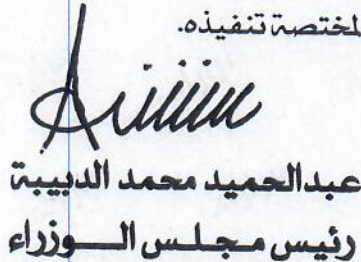 لمختصة تنفيذه.
عبدالحميد محمد الدبيبة
رئيس مجلس الـوزراء